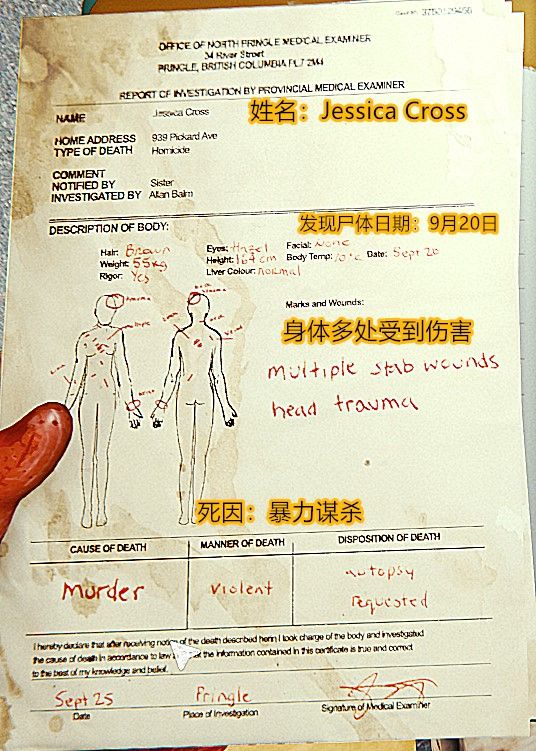 3750129466
OFFICE OF NORTH PRINGLE MEDICAL EXAMINER
34 River Street
PRINGLE, BRITISH COLUMBIA
REPORT OF INVESTIGATION BY PROVINCIAL MEDICAL EXAMINER
NAME Jessica Cross
姓名：Jessica Cross
HOME ADDRESS 939 Pickard Ave
TYPE OF DEATH Homicide
COMMENT
NOTIFIED BY Sister
INVESTIGATED BY Allan Balm
发现尸体日期：9月20日
DESCRIPTION OF BODY:
Hair: Brown Eyes: Hazel Facial: None
Weight: 55kg Height: 164cm Body Temp: 10°c Date: Sept 20
Rigor: Yes Liver Colour: normal
Marks and Wounds:
身体多处受到伤害
multiple stab wounds
head trauma
死因：暴力谋杀
CAUSE OF DEATH MANNER OF DEATH DISPOSITION OF DEATH
Murder violent autopsy
requested
I hereby declare that after receiving notice of the death described herin I took charge of the body and investigated
the cause of death in accordance to law the information contained in this certificate is true and correct
to the best of my knowledge and belief.
Sept 25 Pringle
Date Place of Investigation Signature of Medical Examiner